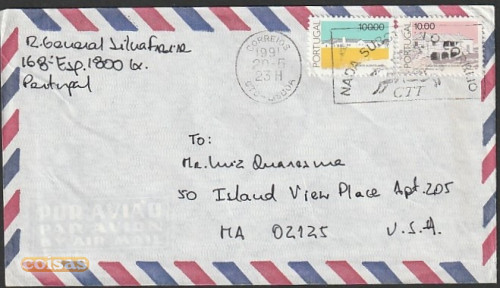 R. General Silva Freire
168-Esp. 1800 Lx.
Portugal
CORREIOS
1991
20-5
23H
CTC-LISBOA
PORTUGAL
100.00
PORTUGAL
10.00
NADA
CTT
To:
Mr. Luiz Quaresma
50 Island View Place Apt. 205
MA 02125 U.S.A.
POR AVIÃO
PAR AVION
BY AIR MAIL
coisas